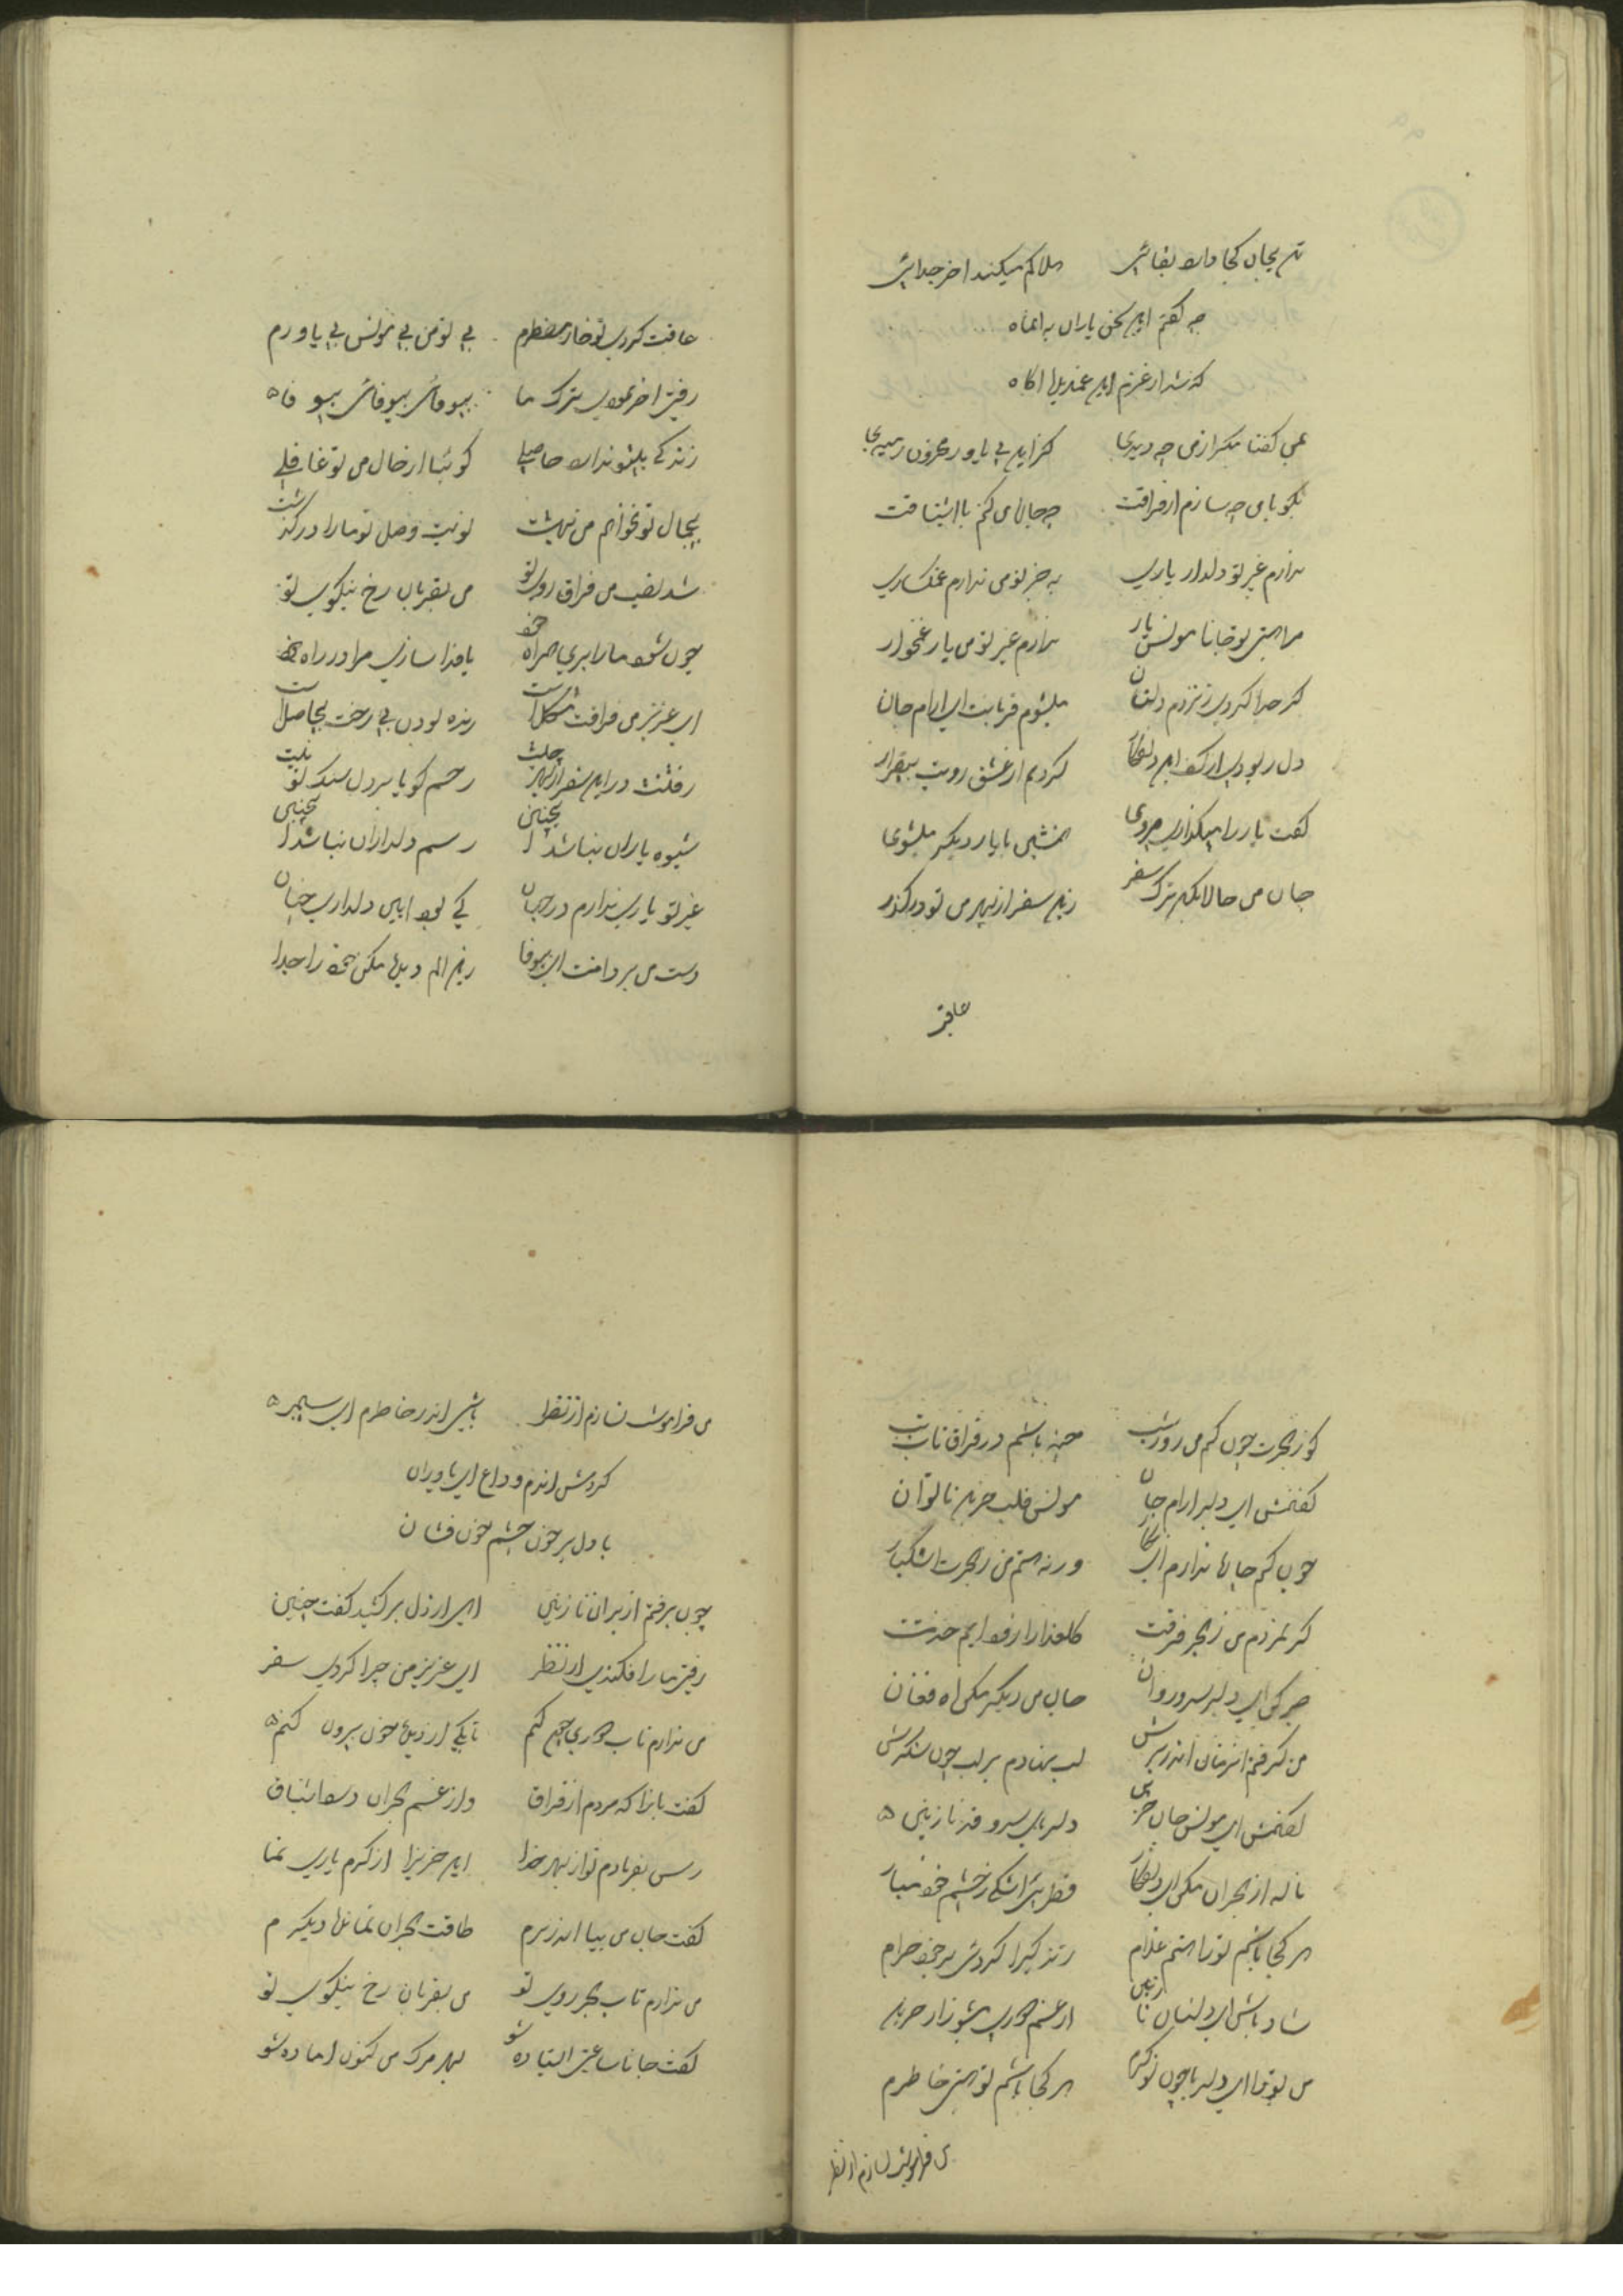 تن بیجان کجا دارد بقائی هلاکم میکند اخر جدائی
چه گفتم این سخن یاران به انماه
که شد از عزم این غمدیده اکاه
بمن گفتا مکر از من چه دیدی کزین بی یاور محزون رمیدی
بکو با من چه سازم از فراقت چه جان من کنم با اشتیاقت
ندارم غیر تو دلدار یاری به جز تو من ندارم غمکساری
مرا هستی تو جانا مونس یار ندارم غیر تو من یار غمخوار
کر جدا کردی ز نزدم دلستان میشوم قربانت ای ارام جان
دل ربودی از کف این دلفکار کردیم از عشق رویت بیقرار
گفت یار را میکذاری میروی همنشین با یار دیکر میشوی
جان من حالا بکن ترک سفر زین سفر از بهر من تو درکذر
عاقبت
عاقبت کردی تو خار مضطرم بی تو من بی مونس بی یاورم
رفتی اخر نمودی ترک ما بیوفائی بیوفائی بیوفا
زندکی بیتو ندارد حاصلی کوئیا از حال من تو غافلی
بیجمال تو نخواهم من بهشت نوبت وصل تو ما را درکذشت
شد نصیب من فراق روی تو من بقربان رخ نیکوی تو
چون شود ما را بری همراه خود یا فدا سازی مرا در راه خود
ای عزیز من فراقت مشکل است زنده بودن بی رخت بیحاصل است
رفتنت در این سفر از بهر چیست رحم کویا بر دل سنک تو نیست
شیوه یاران نباشد اینچنین رسم دلداران نباشد اینچنین
غیر تو یاری ندارم در جهان کی بود این دلداری چنان
دست من بر دامنت ای بیوفا زین الم دیده مکن خود را جدا
کو ز هجرت چون کنم من روز شب چند باشم در فراق تاب تب
گفتمش ای دلبر ارام جان مونس قلب حزین ناتوان
چون کنم جانا ندارم ای نکار ورنه هستم من ز هجرت اشکبار
کر نمردم من ز هجر فرقت کلعذارا زود ایم خدمتت
صبر کن ای دلبر سرو روان جان من دیکر مکن اه فغان
من کرفتم انزمان اندر برش لب نهادم بر لب چون شکرش
گفتمش ای مونس جان حزین دلربای سرو قد نازنین
ناله از هجران مکن ای دلفکار قطره اشکی ز چشم خود مبار
هر کجا باشم تو را هستم غلام زندکی را کردمی بر خود حرام
شاد باش ای دلستان نازنین از غم دوری مشو زار حزین
من تو را ای دلربا چون نوکرم هر کجا باشم تو هستی خاطرم
من فراموشت نسازم از نظر
من فراموشت نسازم از نظر باشی اندر خاطرم ای سیمبر
کردمش اندم وداع ای یاوران
با دل پر خون چشم خون فشان
چون برفتم از بر ان نازنین اهی از دل برکشید گفت چنین
رفتی ما را فکندی از نظر ای عزیز من چرا کردی سفر
من ندارم تاب دوری چون کنم تا بکی از دیده خون بیرون کنم
گفت بازا که مردم از فراق واز غم هجران وصد اشتیاق
رس بفریادم تو از بهر خدا این حزین را از کرم یاری نما
گفت جان من بیا اندر برم طاقت هجران نمانده دیکرم
من ندارم تاب هجر روی تو من بقربان رخ نیکوی تو
گفت جانا ساعتی ایستاده شو بهر مرک من کنون اماده شو